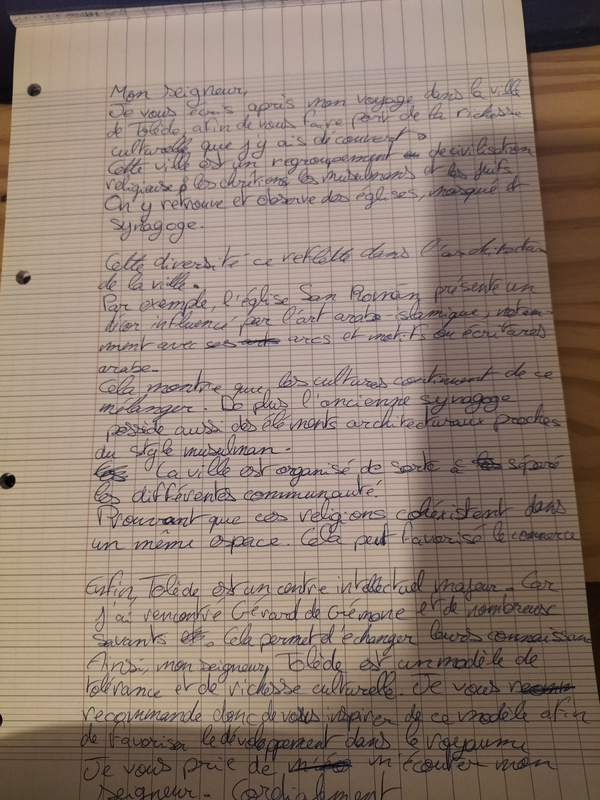 Mon seigneur,
Je vous écris après mon voyage dans la ville
de Tolède, afin de vous faire part de la richesse
culturelle que j'y ais découvert.
Cette ville est un regroupement de civilisation
religieuse les chrétiens les musulmans et les juifs
On y retrouve et observe des églises, mosqué et
synagoge.
Cette diversité ce reflette dans l'architecture
de la ville.
Par exemple, l'église San Román présente un
décor influencé par l'art arabo-islamique, notam-
ment avec arcs et motifs ou écritures
arabe.
Cela montre que les cultures continuent de ce
mélanger. De plus l'ancienne synagoge
possède aussi des éléments architecturaux proches
du style musulman.
La ville est organisé de sorte à séparé
les différentes communauté.
Prouvant que ces religions cohéxistent dans
un même espace. Cela peut favorisé le commerce
Enfin, Tolède est un centre intellectuel majeur. Car
j'ai rencontré Gérard de Crémone et de nombreux
savants. Cela permet d'échanger leurs connaissances
Ainsi, mon seigneur, Tolède est un modèle de
tolérance et de richesse culturelle. Je vous
recommande donc de vous inspirer de ce modèle afin
de favoriser le développement dans le royaume
Je vous prie de m'écouter mon
seigneur. Cordialement